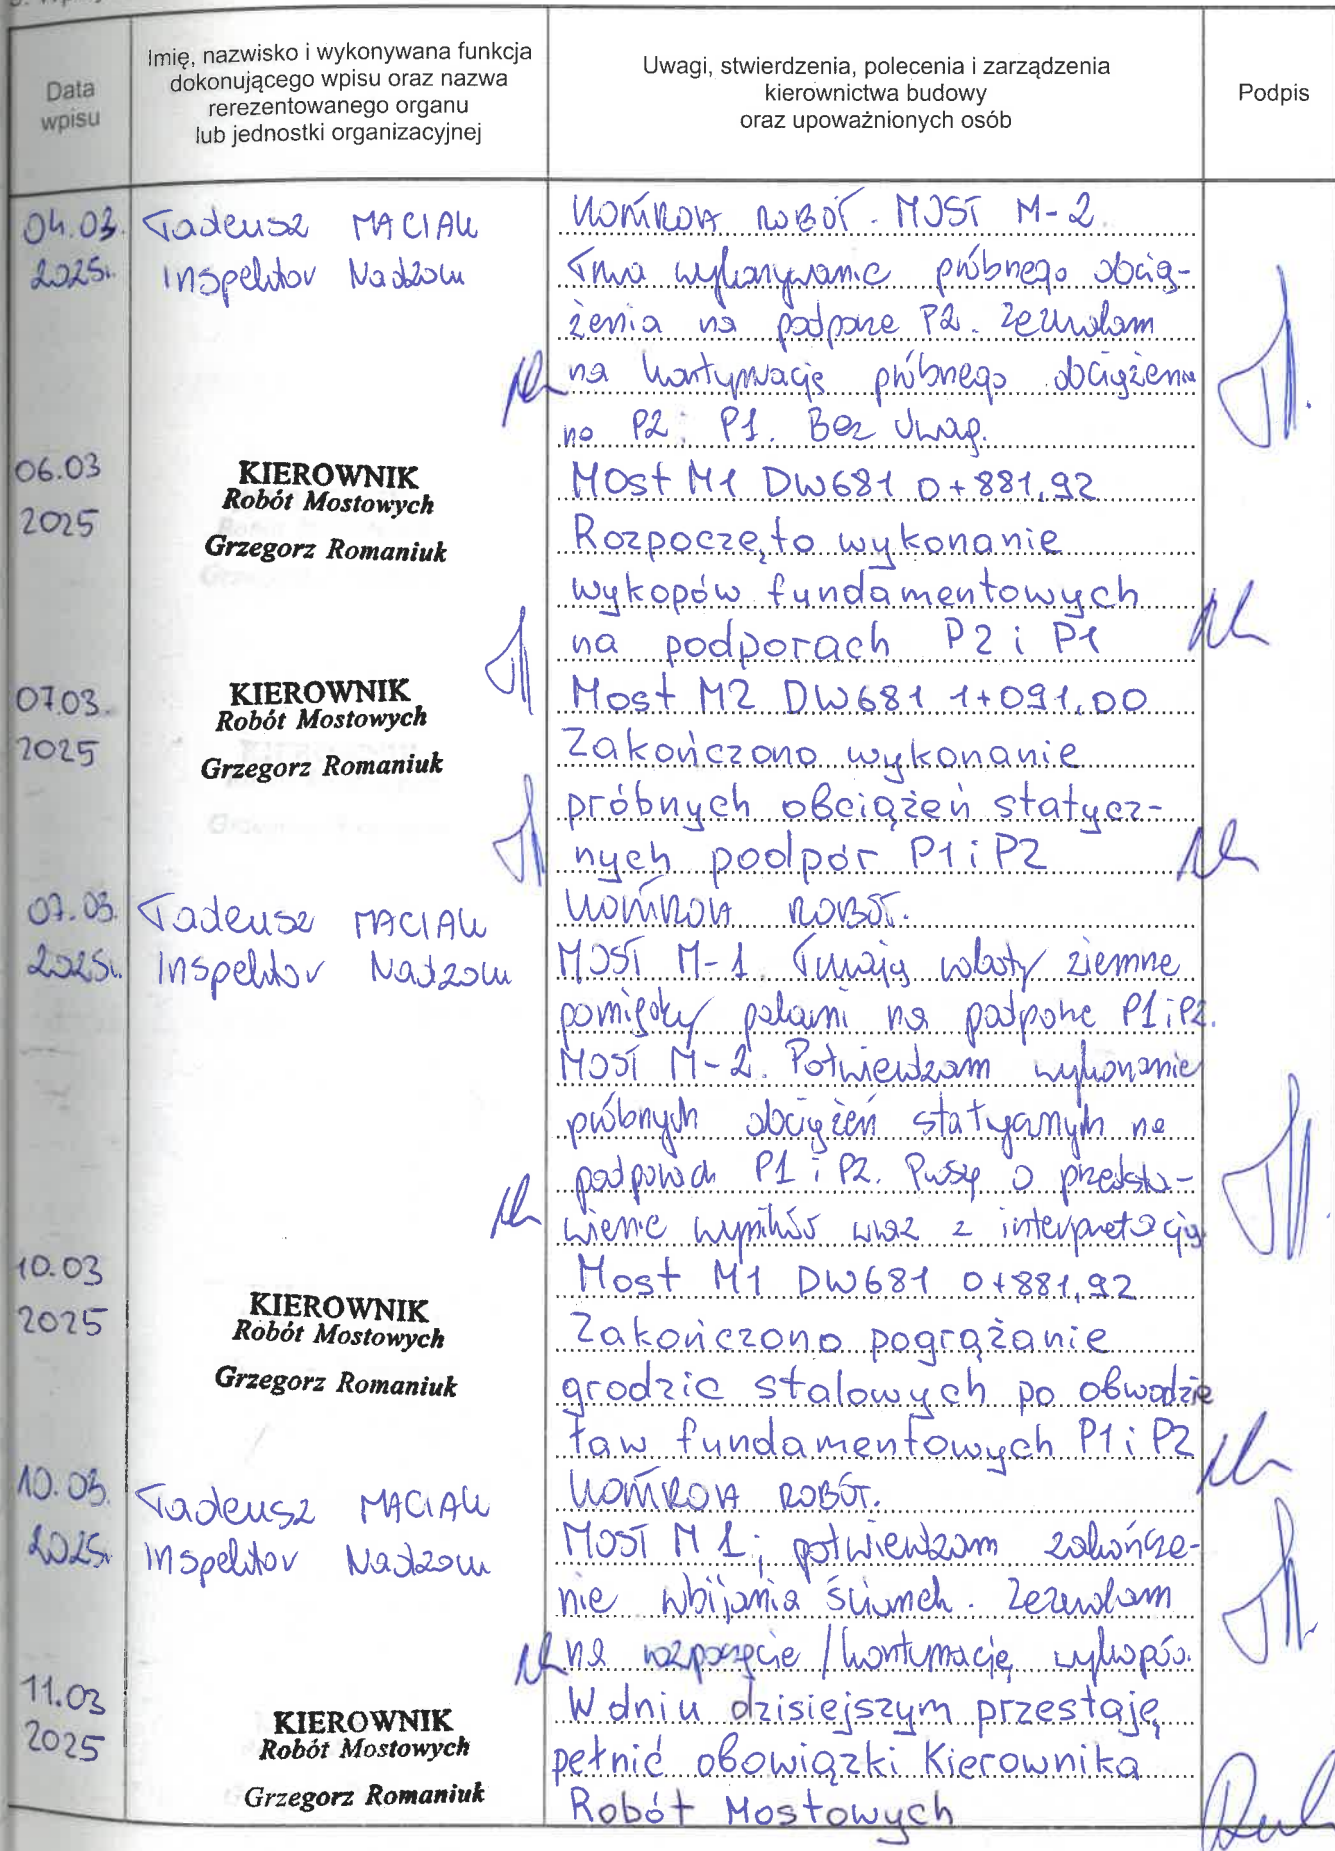 Data
wpisu
Imię, nazwisko i wykonywana funkcja
dokonującego wpisu oraz nazwa
rerezentowanego organu
lub jednostki organizacyjnej
Uwagi, stwierdzenia, polecenia i zarządzenia
kierownictwa budowy
oraz upoważnionych osób
Podpis
04.03.
2025r.
Tadeusz MACIAK
Inspektor Nadzoru
KONTROLA ROBÓT. MOST M-2.
Trwa wykonywanie próbnego obcią-
żenia na podporze P2. Zezwalam
na kontynuację próbnego obciążenia
na P2 i P1. Bez uwag.
06.03
2025
KIEROWNIK
Robót Mostowych
Grzegorz Romaniuk
Most M1 DW681 0+881,92
Rozpoczęto wykonanie
wykopów fundamentowych
na podporach P2 i P1
07.03.
2025
KIEROWNIK
Robót Mostowych
Grzegorz Romaniuk
Most M2 DW681 1+091,00
Zakończono wykonanie
próbnych obciążeń statycz-
nych podpór P1 i P2
07.03.
2025r.
Tadeusz MACIAK
Inspektor Nadzoru
KONTROLA ROBÓT.
MOST M-1. Trwają roboty ziemne
pomiędzy palami na podporze P1 i P2.
MOST M-2. Potwierdzam wykonanie
próbnych obciążeń statycznych na
podporach P1 i P2. Proszę o przedsta-
wienie wyników wraz z interpretacją
10.03
2025
KIEROWNIK
Robót Mostowych
Grzegorz Romaniuk
Most M1 DW681 0+881,92
Zakończono pogrążanie
grodzic stalowych po obwodzie
ław fundamentowych P1 i P2
10.03.
2025r.
Tadeusz MACIAK
Inspektor Nadzoru
KONTROLA ROBÓT.
MOST M1; potwierdzam zakończe-
nie wbijania ścianek. Zezwalam
na rozpoczęcie / kontynuację wykopów.
11.03
2025
KIEROWNIK
Robót Mostowych
Grzegorz Romaniuk
W dniu dzisiejszym przestaję
pełnić obowiązki Kierownika
Robót Mostowych